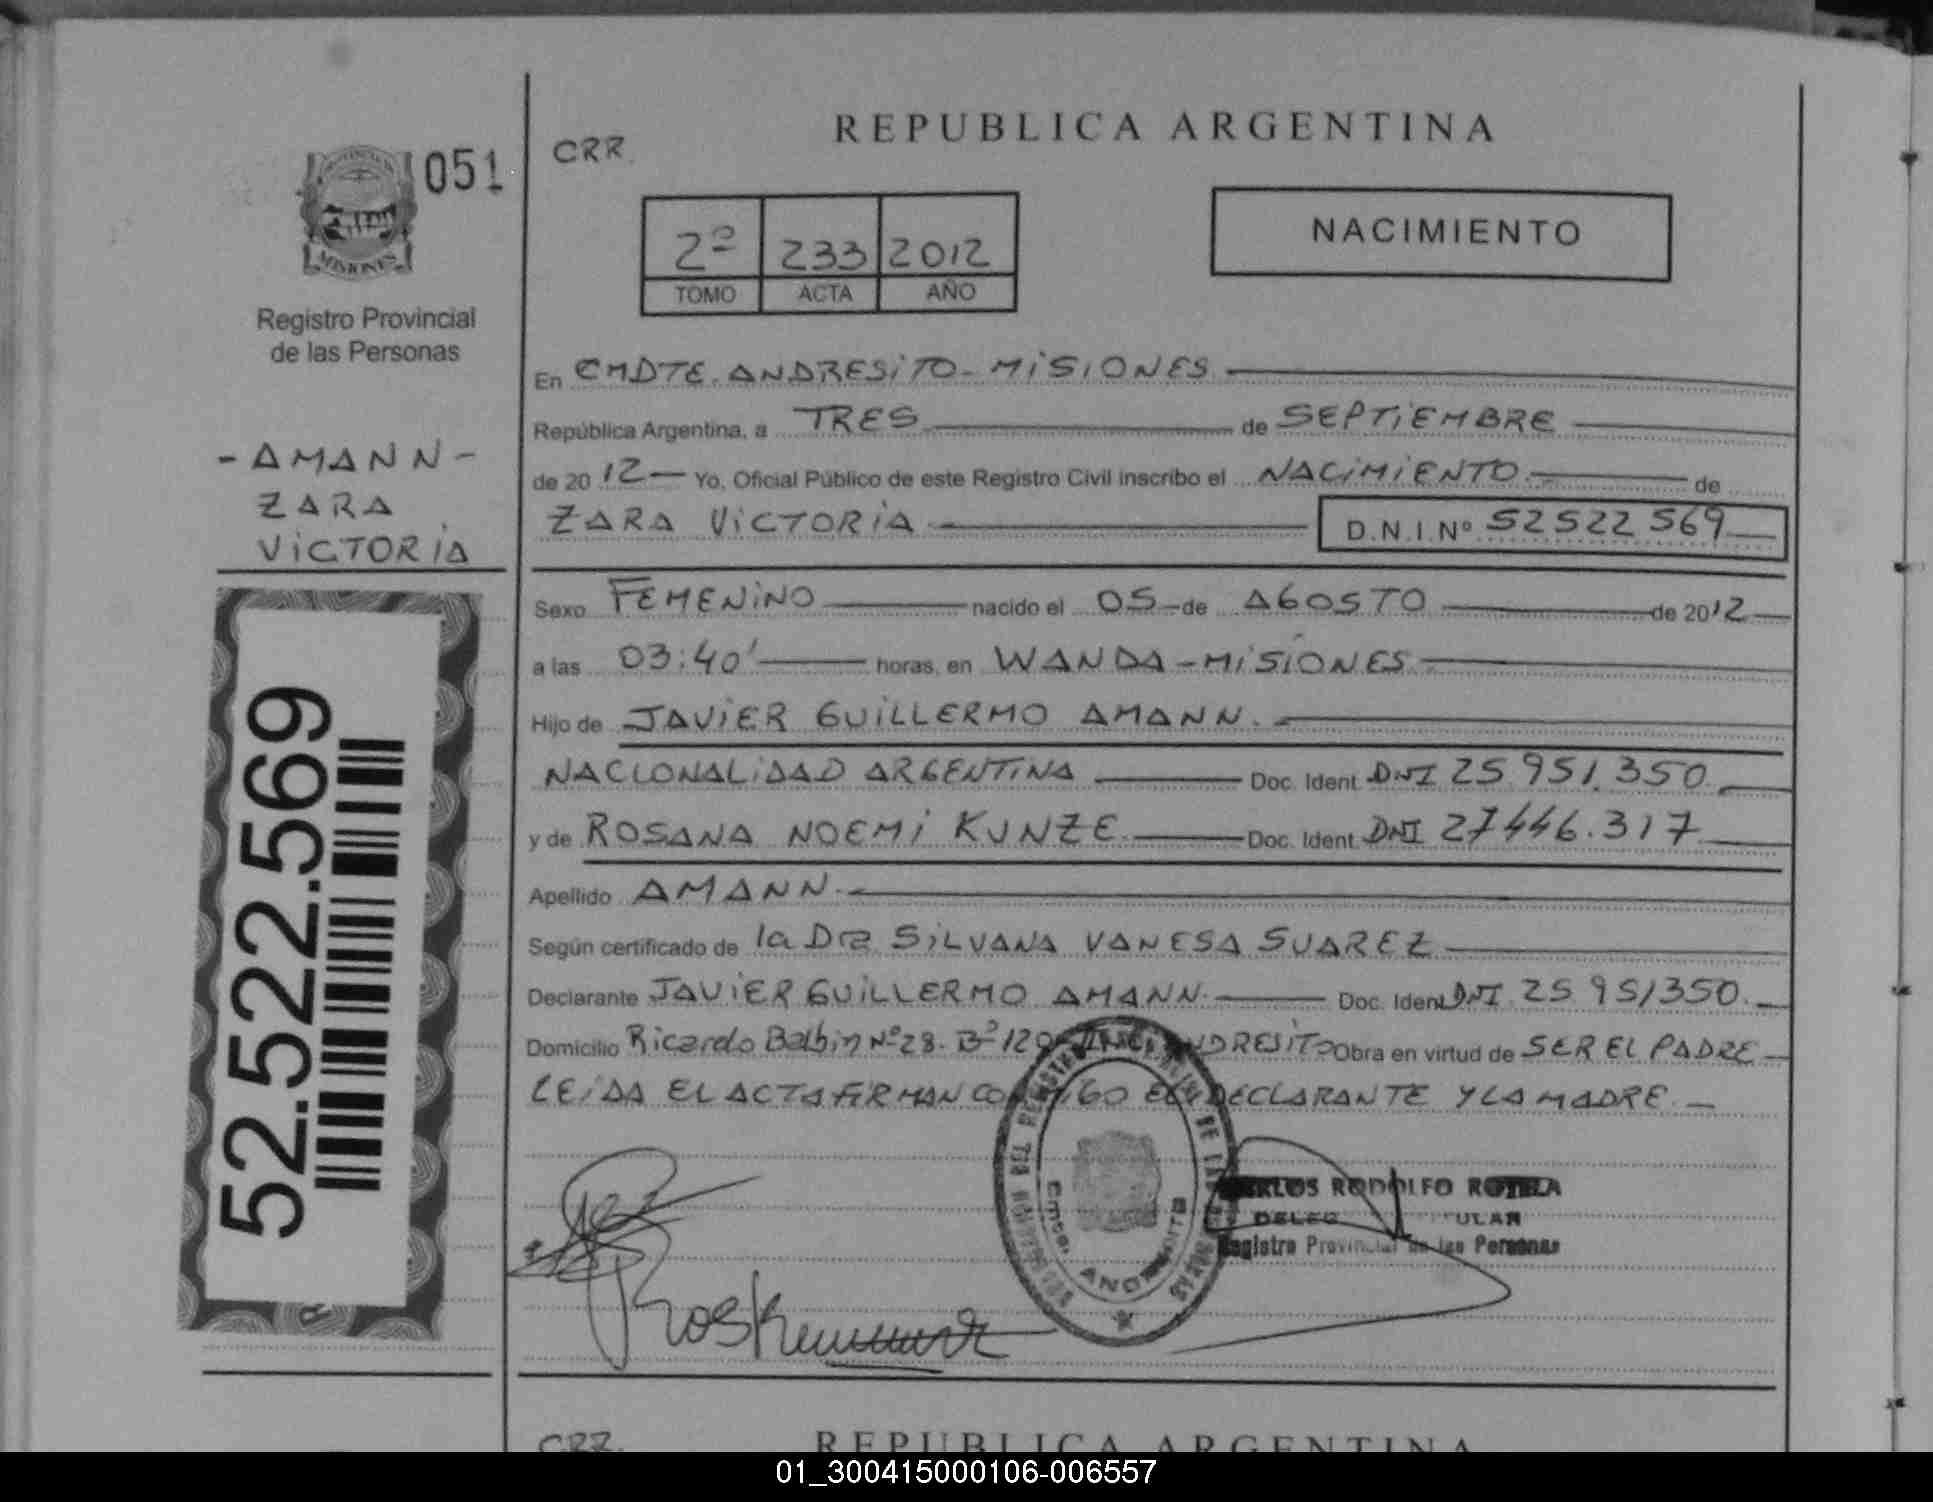 REPUBLICA ARGENTINA
CRR.
051
MISIONES
Registro Provincial
de las Personas
2º 233 2012
TOMO ACTA AÑO
NACIMIENTO
En CMDTE. ANDRESITO - MISIONES.
República Argentina, a TRES de SEPTIEMBRE
de 2012 Yo, Oficial Público de este Registro Civil inscribo el NACIMIENTO. de
ZARA VICTORIA. D.N.I.Nº 52522569
- AMANN -
ZARA
VICTORIA
52.522.569
Sexo FEMENINO nacido el 05 de AGOSTO de 2012
a las 03:40' horas, en WANDA - MISIONES.
Hijo de JAVIER GUILLERMO AMANN.
NACIONALIDAD ARGENTINA Doc. Ident. DNI 25.951.350.
y de ROSANA NOEMI KUNZE. Doc. Ident. DNI 27446.317
Apellido AMANN.
Según certificado de la Dra SILVANA VANESA SUAREZ
Declarante JAVIER GUILLERMO AMANN. Doc. Ident. DNI 25.951350.
Domicilio Ricardo Balbin Nº 28. Bº 120 ANDRESITO Obra en virtud de SER EL PADRE
LEIDA EL ACTA FIRMAN CONMIGO EL DECLARANTE Y LA MADRE. -
CARLOS RODOLFO ROTELA
DELEG TULAR
Registro Provincial de las Personas
Cmte. ANDRESITO
CRR.
REPUBLICA ARGENTINA
01_300415000106-006557